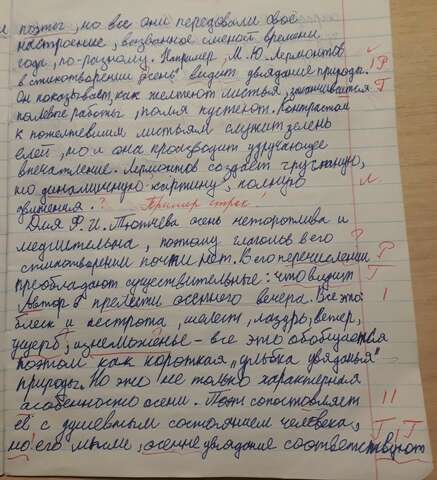 поэты, но все они передавали своё
настроение, вызванное сменой времени
года, по-разному. Например, М. Ю. Лермонтов
в стихотворении „осень" видит увядание природы.
Он показывает, как желтеют листья, заканчивается
полевые работы, поля пустеют. Контрастом
к пожелтевшим листьям служит зелень
елей, но и она производит удручающее
впечатление. Лермонтов создаёт грустную,
но динамичную картину, полную
движения. ? Пример строк!
Для Ф. И. Тютчева осень неторопива и
медлительна, поэтому глаголов в его
стихотворении почти нет. В его перечислении
преобладают существительные: что видит
Автор в прелести осеннего вечера. Все это:
блеск и пестрота, шелест, лазурь, ветер,
ущерб, изнеможенье - все это обобщается
поэтом как короткая „улыбка увяданья"
природы. Но это не только характерная
особенность осени. Поэт сопоставляет
её с душевным состоянием человека,
по его мысли, осенне увядание соответствуют